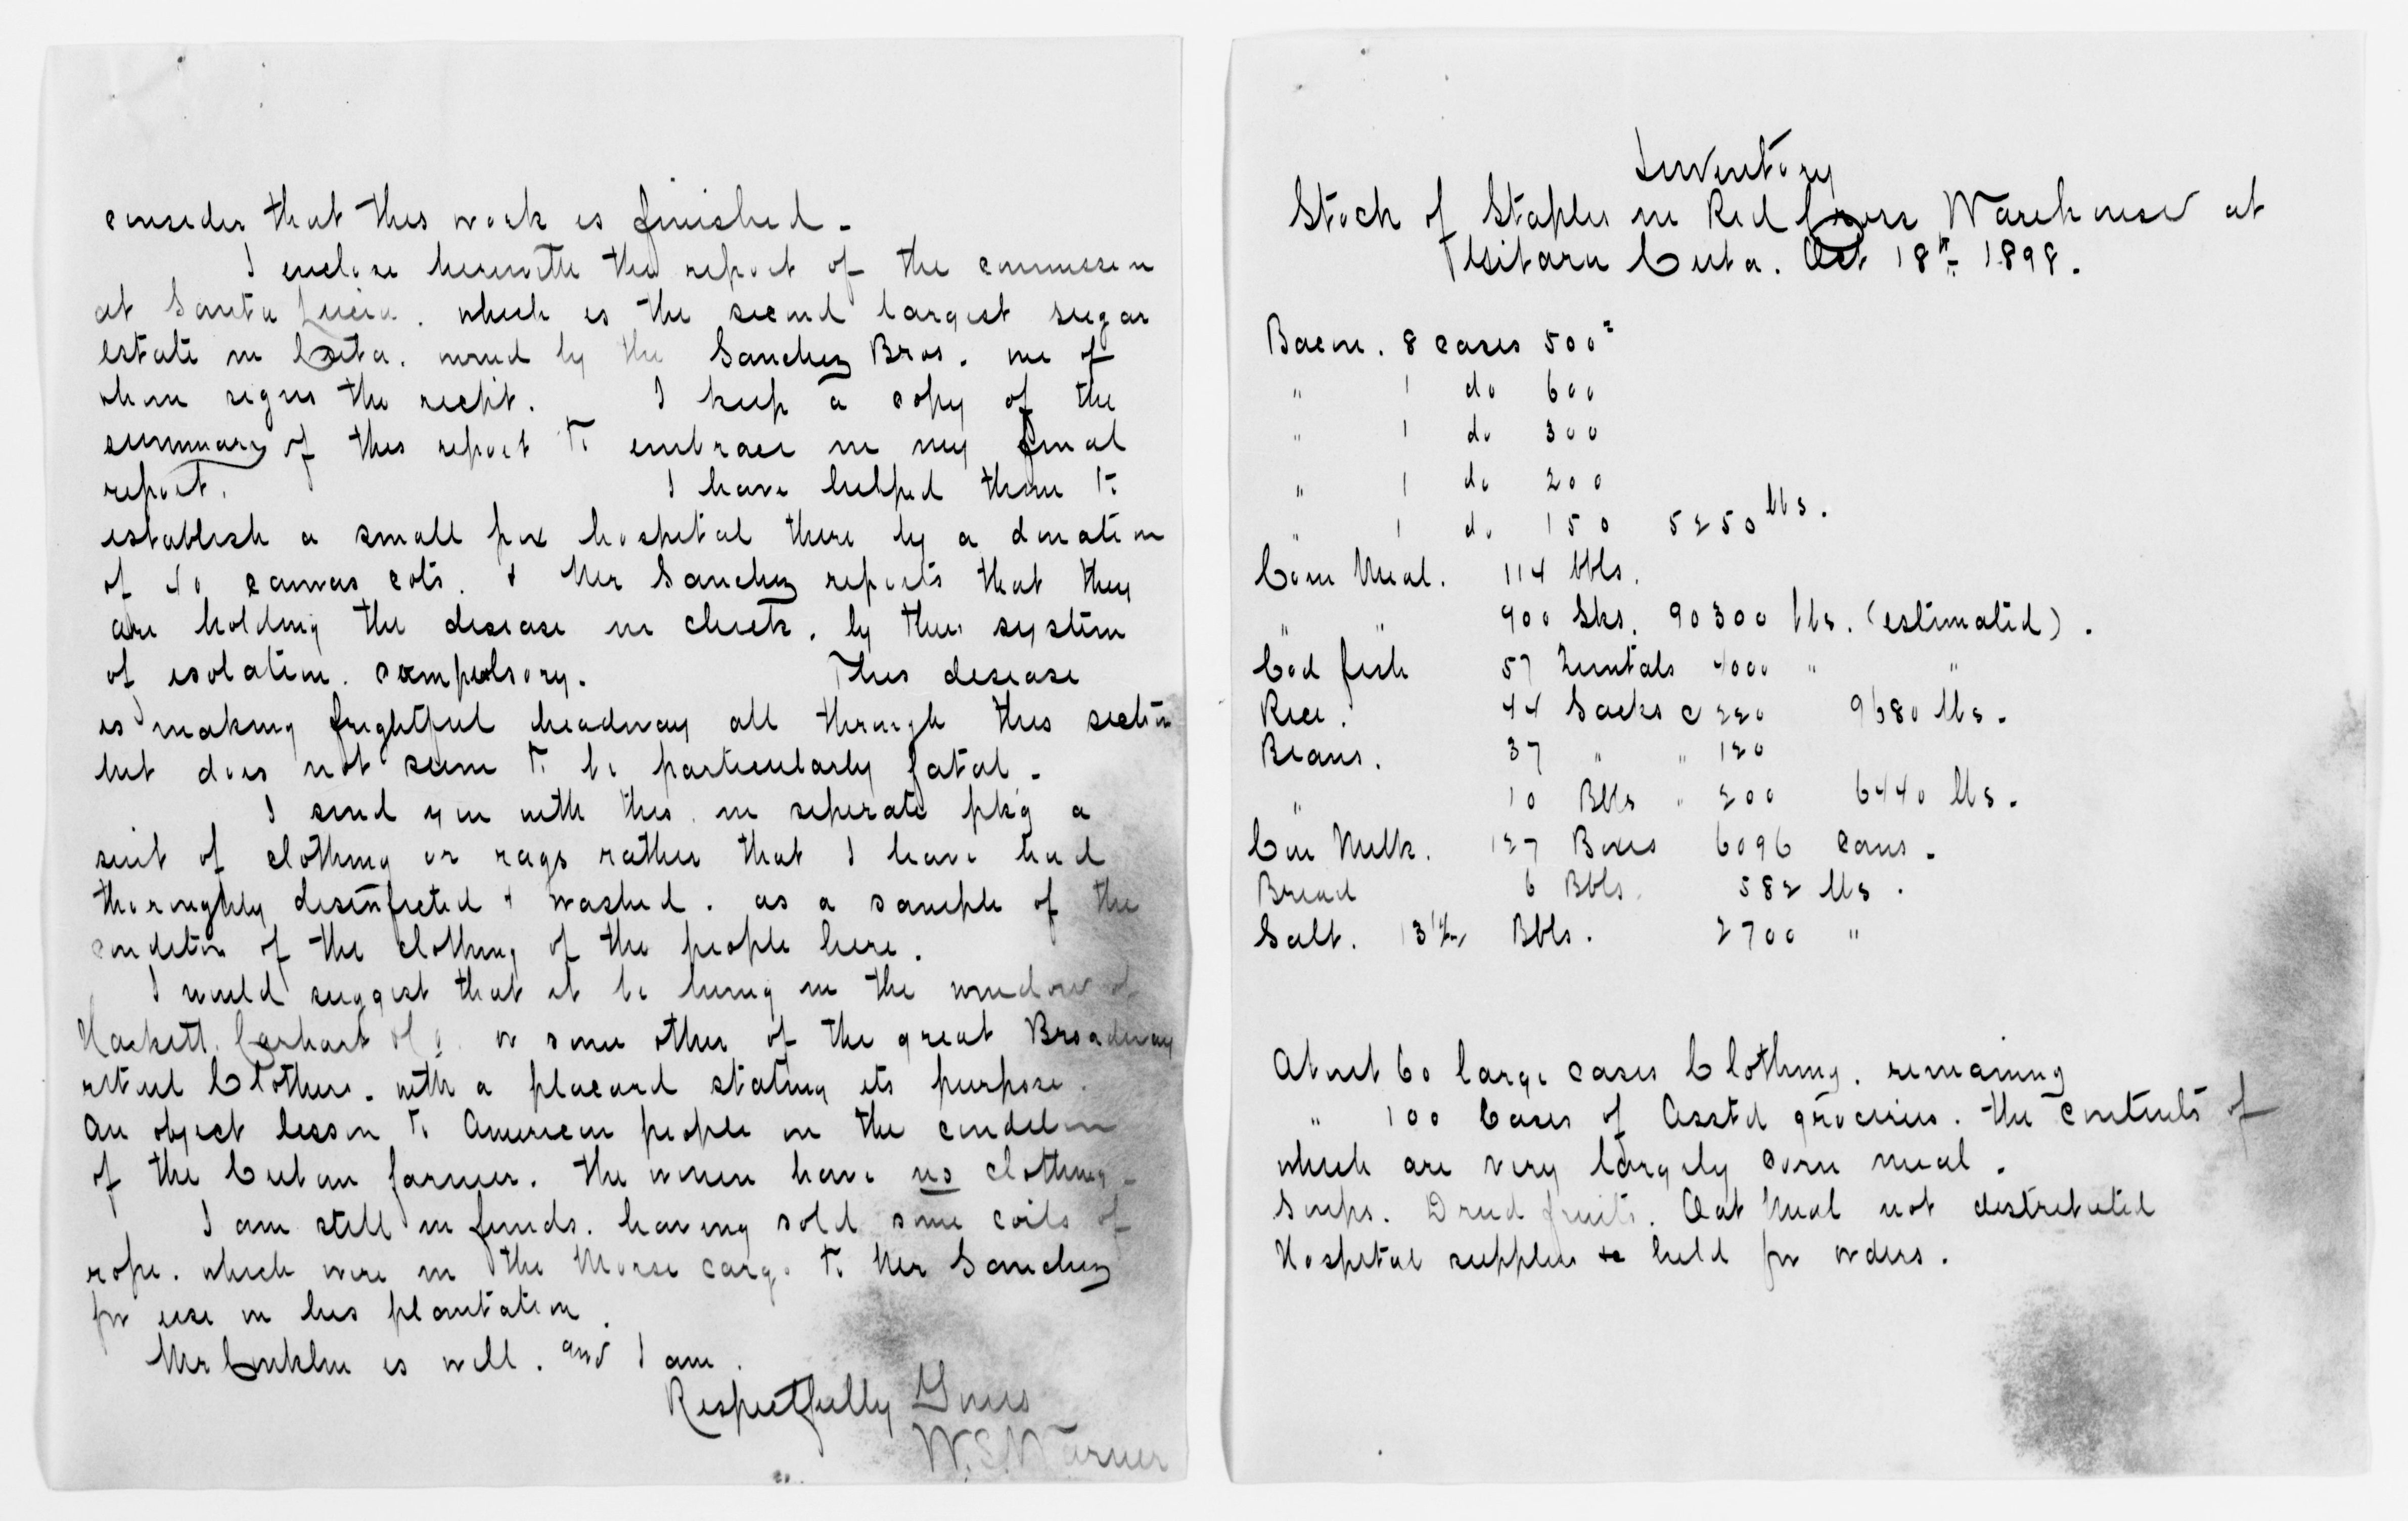 consider that this work is finished -
I enclose herewith the report of the commission
at Santa Lucia. which is the second largest sugar
estate in Cuba. owned by the Sanchez Bros. one of
whom signs the recpt. I keep a copy of the
summary of this report to embrace in my final
report. I have helped them to
establish a small pox hospital there by a donation
of 40 canvas cots. & Mr Sanchez reports that they
are holding the disease in check. by their system
of isolation. compulsory. This disease
is making frightful headway all through this section
but does not seem to be particularly fatal -
I send you with this. in seperate pk'g a
suit of clothing or rags rather that I have had
thoroughly disinfected & washed. as a sample of the
condition of the clothing of the people here.
I would suggest that it be hung in the window of
Hackett. Carhart & Co. or some other of the great Broadway
retail Clothers. with a placard stating its purpose.
An object lesson to American people on the condition
of the Cuban farmer. The women have no clothing -
I am still in funds. having sold some coils of
rope. which were in the Morse cargo to Mr Sanchez
for use on his plantation.
Mr Conklin is well. and I am.
Respectfully Yours
W. S. Warner
Inventory
Stock of Staples in Red Cross Warehouse at
Gibara Cuba. Oct 18th 1898.
Bacon. 8 cases 500#
" 1 do 600
" 1 do 300
" 1 do 200
" 1 do 150 5250 lbs.
Corn Meal. 114 bbls.
" " 900 Sks. 90300 lbs. (estimated).
Cod fish 57 Quintals 4000 " "
Rice. 44 Sacks @ 220 9680 lbs.
Beans. 37 " " 120
" 10 Bbls " 200 6440 lbs.
Con Milk. 127 Boxes 6096 cans.
Bread 6 Bbls. 582 lbs.
Salt. 13 1/2 Bbls. 2700 "
About 60 large cases Clothing. remaining
" 100 Cases of Asstd groceries. the contents of
which are very largely corn meal.
Soups. Dried fruits. Oat Meal not distributed
Hospital supplies held for orders.